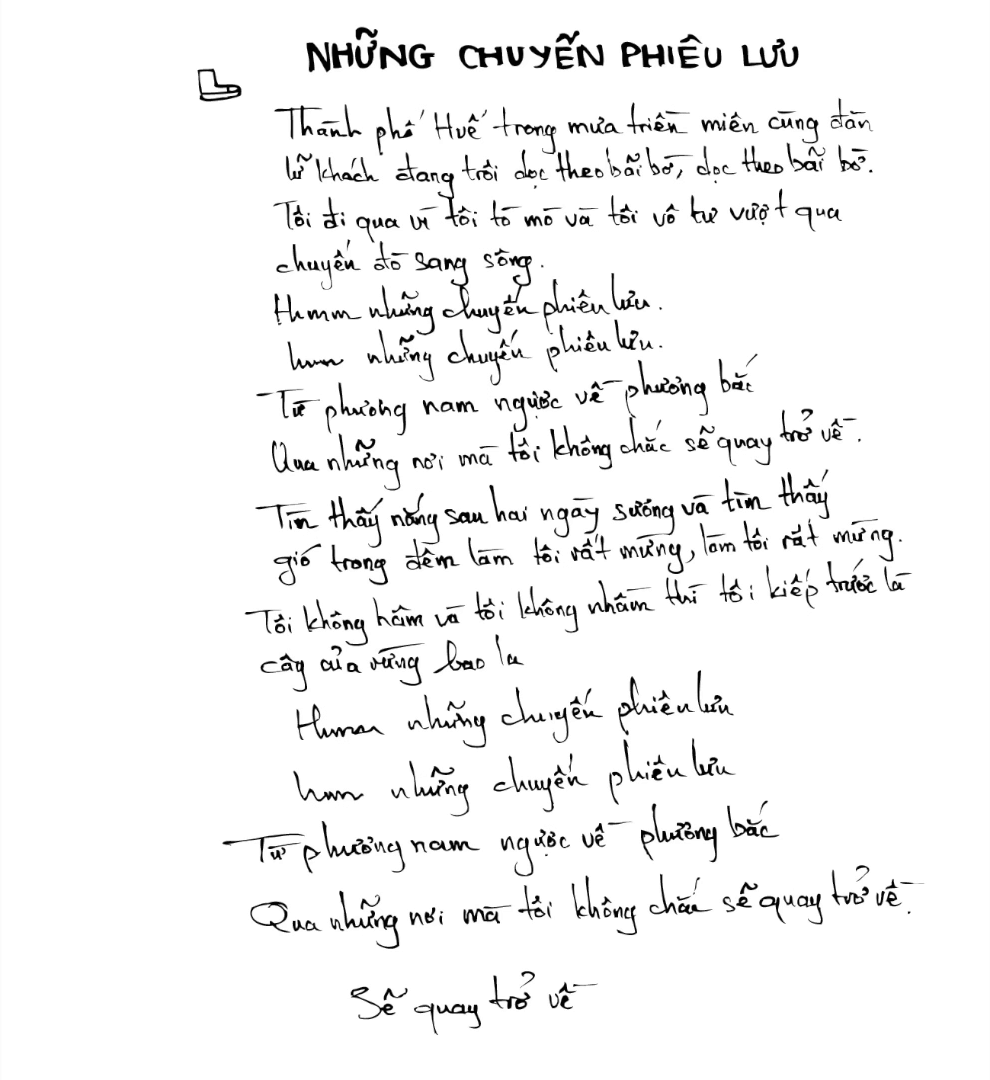 NHỮNG CHUYẾN PHIÊU LƯU
Thành phố Huế trong mưa triền miên cùng đàn
lữ khách đang trôi dọc theo bãi bờ, dọc theo bãi bờ.
Tôi đi qua vì tôi tò mò và tôi vô tư vượt qua
chuyến đò sang sông.
Hmmm những chuyến phiêu lưu.
hmm những chuyến phiêu lưu.
Từ phương nam ngược về phương bắc
Qua những nơi mà tôi không chắc sẽ quay trở về.
Tìm thấy nắng sau hai ngày sương và tìm thấy
gió trong đêm làm tôi rất mừng, làm tôi rất mừng.
Tôi không hâm và tôi không nhầm thì tôi kiếp trước là
cây của rừng bao la
Hmmm những chuyến phiêu lưu
hmm những chuyến phiêu lưu
Từ phương nam ngược về phương bắc
Qua những nơi mà tôi không chắc sẽ quay trở về.
Sẽ quay trở về